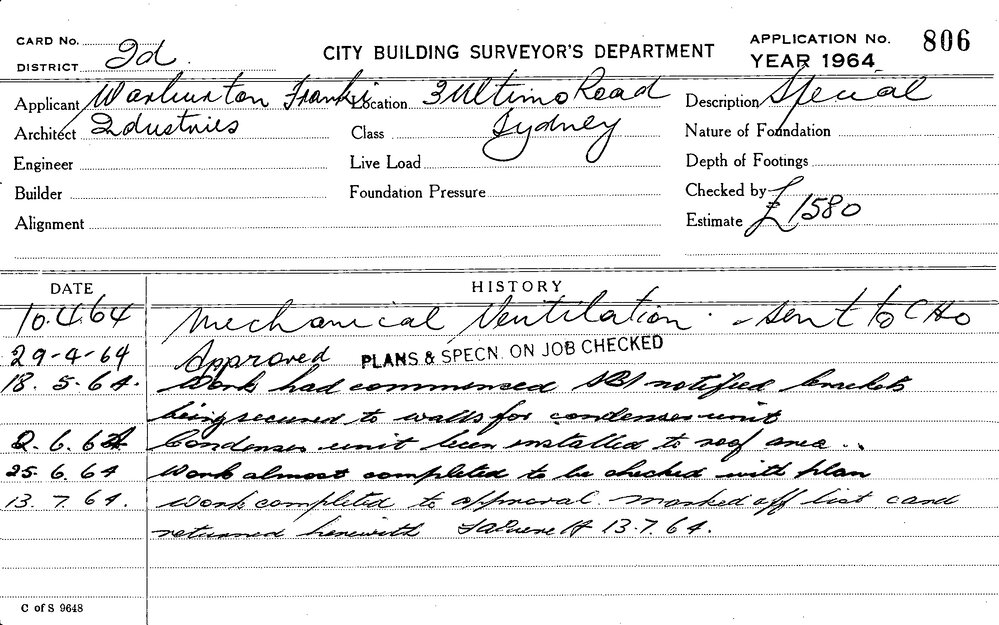 CARD No.
CITY BUILDING SURVEYOR'S DEPARTMENT
APPLICATION No. 806
DISTRICT 2d.
YEAR 1964
Applicant Warburton Franki Location 3 Ultimo Road Description Special
Architect Industries Class Sydney Nature of Foundation
Engineer Live Load Depth of Footings
Builder Foundation Pressure Checked by
Alignment Estimate £1580
DATE HISTORY
10.4.64 Mechanical Ventilation. - Sent to CHO
29-4-64 Approved PLANS & SPECN. ON JOB CHECKED
18. 5. 64. Work had commenced notified brackets
being secured to walls for condenser unit
2. 6. 64 Condenser unit been installed to roof area..
25. 6. 64 Work almost completed to be checked with plan
13. 7. 64. Work completed to approval. marked off list card
returned herewith 13.7.64.
C of S 9648